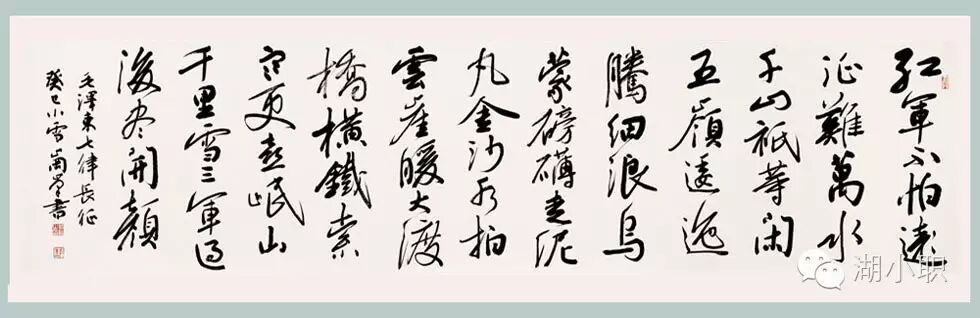 紅軍不怕遠
征難萬水
千山祇等閑
五嶺逶迤
騰細浪烏
蒙磅礴走泥
丸金沙水拍
雲崖暖大渡
橋橫鐵索
寒更喜岷山
千里雪三軍過
後尽開顏
毛澤東七律長征
癸巳小雪書
湖小职